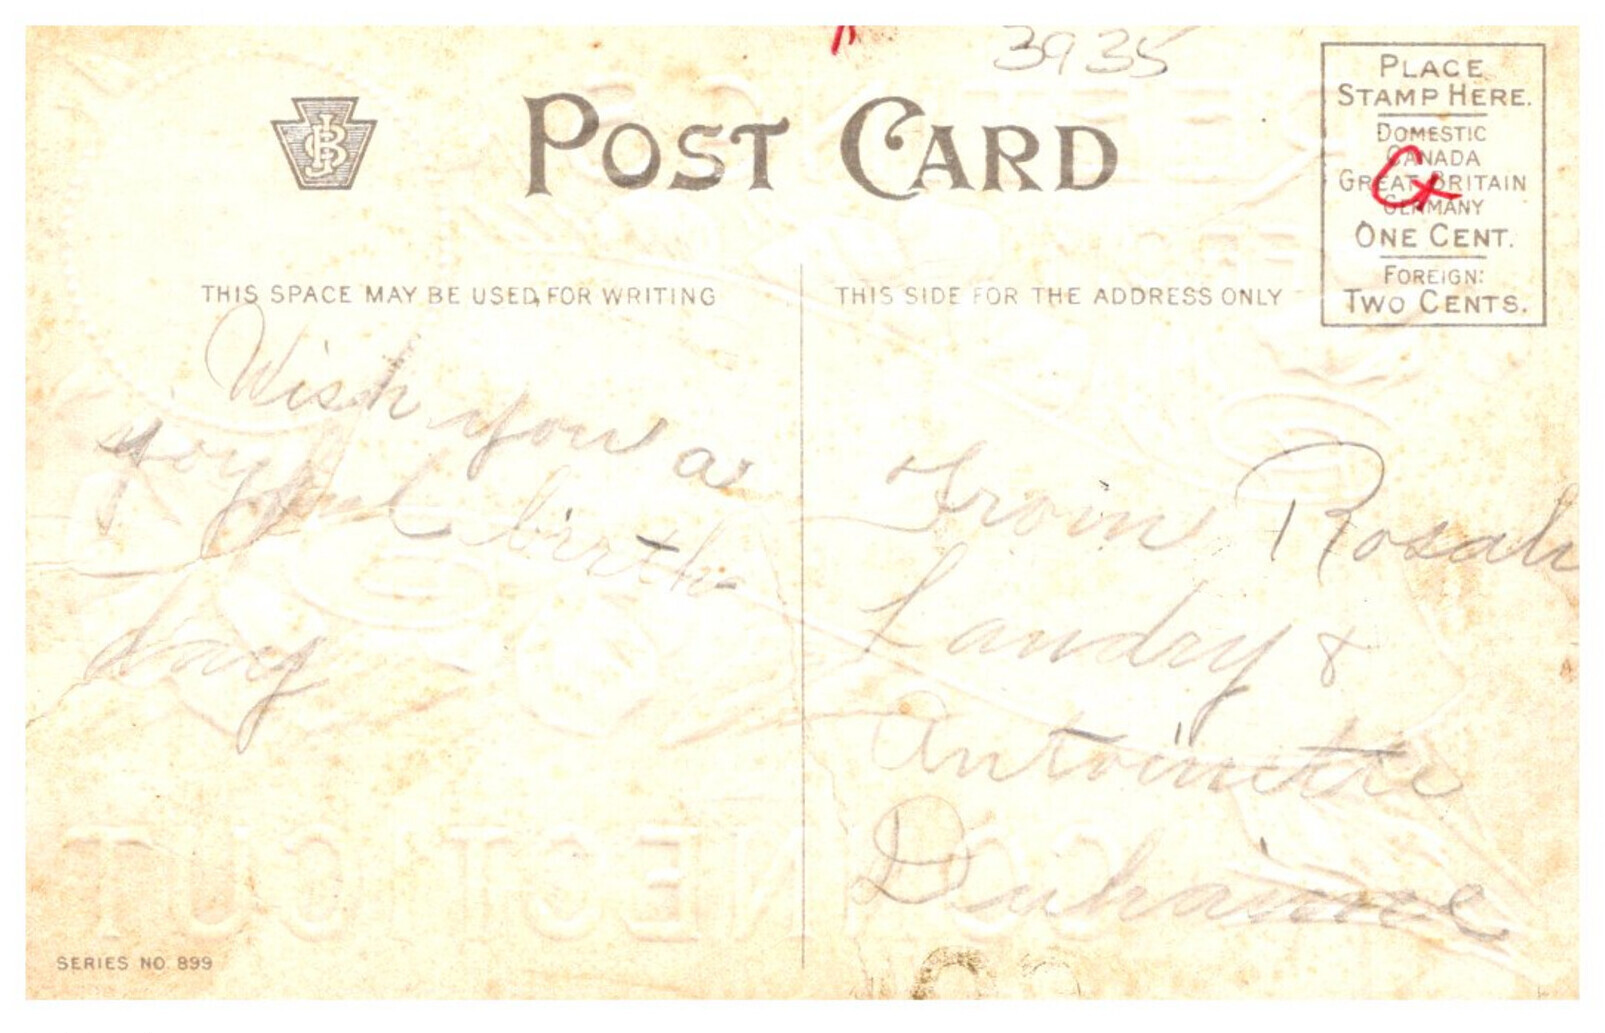 3935
POST CARD
JB
PLACE
STAMP HERE.
DOMESTIC
CANADA
GREAT BRITAIN
GERMANY
ONE CENT.
FOREIGN:
TWO CENTS.
THIS SPACE MAY BE USED FOR WRITING
Wish you a
joyful birth-
day
THIS SIDE FOR THE ADDRESS ONLY
From Rosali
Landry &
Antoinette
Duhaime
CONNECTICUT
SERIES NO. 899